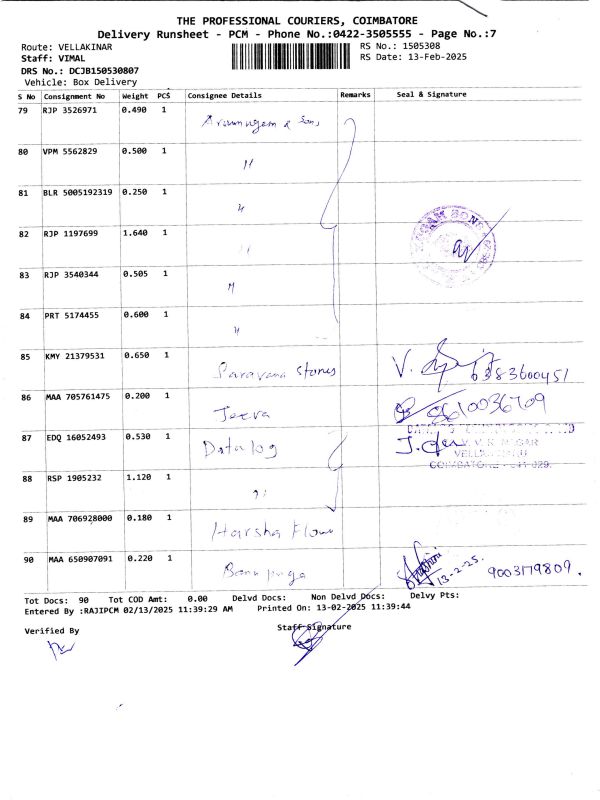 THE PROFESSIONAL COURIERS, COIMBATORE
Delivery Runsheet - PCM - Phone No.:0422-3505555 - Page No.:7
Route: VELLAKINAR RS No.: 1505308
Staff: VIMAL RS Date: 13-Feb-2025
DRS No.: DCJB150530807
Vehicle: Box Delivery
S No Consignment No Weight PCS Consignee Details Remarks Seal & Signature
79 RJP 3526971 0.490 1 & Sons
80 VPM 5562829 0.500 1 "
81 BLR 5005192319 0.250 1 "
82 RJP 1197699 1.640 1 "
83 RJP 3540344 0.505 1 "
84 PRT 5174455 0.600 1 "
85 KMY 21379531 0.650 1 Saravana Stores
86 MAA 705761475 0.200 1 Jeeva
87 EDQ 16052493 0.530 1 Datalog
88 RSP 1905232 1.120 1 "
89 MAA 706928000 0.180 1 Harsha
90 MAA 650907091 0.220 1 13-2-25. 9003179809.
Tot Docs: 90 Tot COD Amt: 0.00 Delvd Docs: Non Delvd Docs: Delvy Pts:
Entered By :RAJIPCM 02/13/2025 11:39:29 AM Printed On: 13-02-2025 11:39:44
Verified By Staff Signature